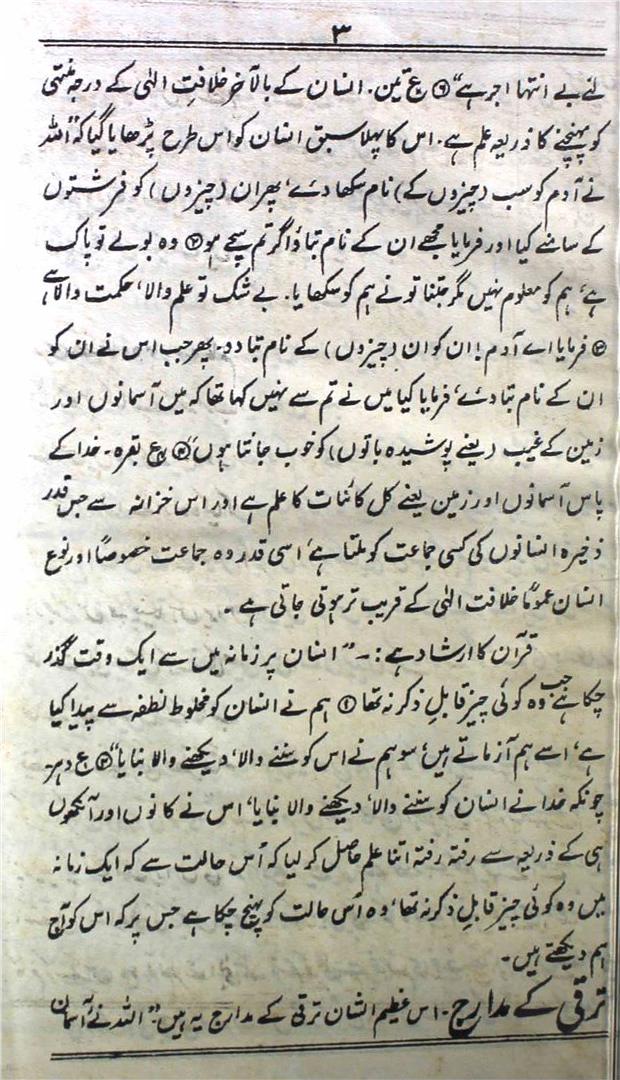 ۳
لئے بے انتہا اجر ہے" ﴿۶﴾ ع تین۔ انسان کے بالآخر خلافتِ الٰہی کے درجہ منتہی
کو پہنچنے کا ذریعہ علم ہے۔ اس کا پہلا سبق انسان کو اس طرح پڑھایا گیا کہ "اللہ
نے آدم کو سب (چیزوں کے) نام سکھا دئے، پھر ان (چیزوں) کو فرشتوں
کے سامنے کیا اور فرمایا مجھے ان کے نام بتاؤ اگر تم سچے ہو وہ بولے تو پاک
ہے، ہم کو معلوم نہیں مگر جتنا تو نے ہم کو سکھایا۔ بے شک تو علم والا، حکمت والا ہے
فرمایا اے آدم! ان کو ان (چیزوں) کے نام بتا دو۔ پھر جب اس نے ان کو
ان کے نام بتا دئے، فرمایا کیا میں نے تم سے نہیں کہا تھا کہ میں آسمانوں اور
زمین کے غیب (یعنے پوشیدہ باتوں) کو خوب جانتا ہوں" ع بقرہ۔ خدا کے
پاس آسمانوں اور زمین یعنے کل کائنات کا علم ہے اور اس خزانہ سے جس قدر
ذخیرہ انسانوں کی کسی جماعت کو ملتا ہے، اسی قدر وہ جماعت خصوصاً اور نوع
انسان عموماً خلافت الٰہی کے قریب تر ہوتی جاتی ہے۔
قرآن کا ارشاد ہے:۔ "انسان پر زمانہ میں سے ایک وقت گذر
چکا ہے جب وہ کوئی چیز قابلِ ذکر نہ تھا ﴿۱﴾ ہم نے انسان کو مخلوط نطفہ سے پیدا کیا
ہے، اسے ہم آزماتے ہیں، سو ہم نے اس کو سننے والا، دیکھنے والا بنایا" ﴿۲﴾ ع دہر۔
چونکہ خدا نے انسان کو سننے والا، دیکھنے والا بنایا، اس نے کانوں اور آنکھوں
ہی کے ذریعہ سے رفتہ رفتہ اتنا علم حاصل کر لیا کہ اُس حالت سے کہ ایک زمانہ
میں وہ کوئی چیز قابلِ ذکر نہ تھا، وہ اُس حالت کو پہنچ چکا ہے جس پر کہ اس کو آج
ہم دیکھتے ہیں۔
ترقی کے مدارج۔ اس عظیم الشان ترقی کے مدارج یہ ہیں "اللہ نے آسمان